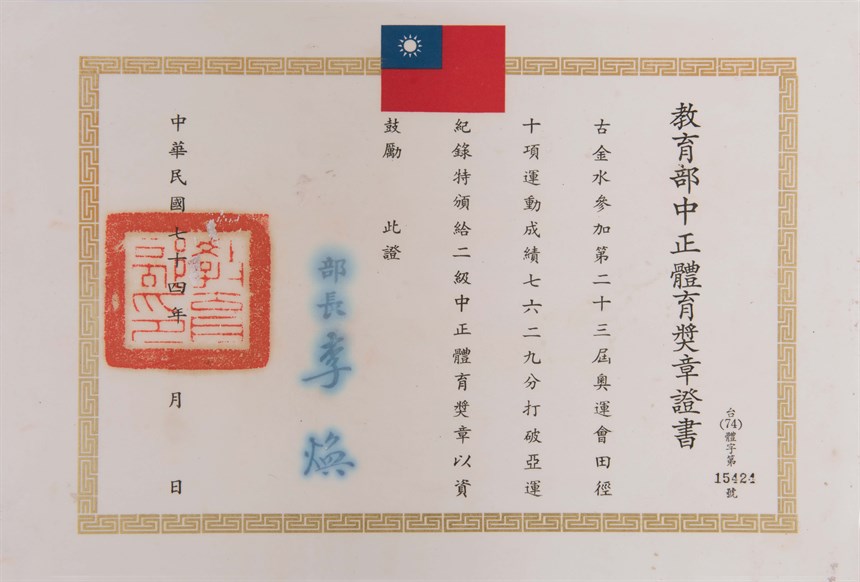 教育部中正體育獎章證書
台(74)體字第15424號
古金水參加第二十三屆奧運會田徑
十項運動成績七六二九分打破亞運
紀錄特頒給二級中正體育獎章以資
鼓勵 此證
部長李煥
中華民國七十四年 月 日